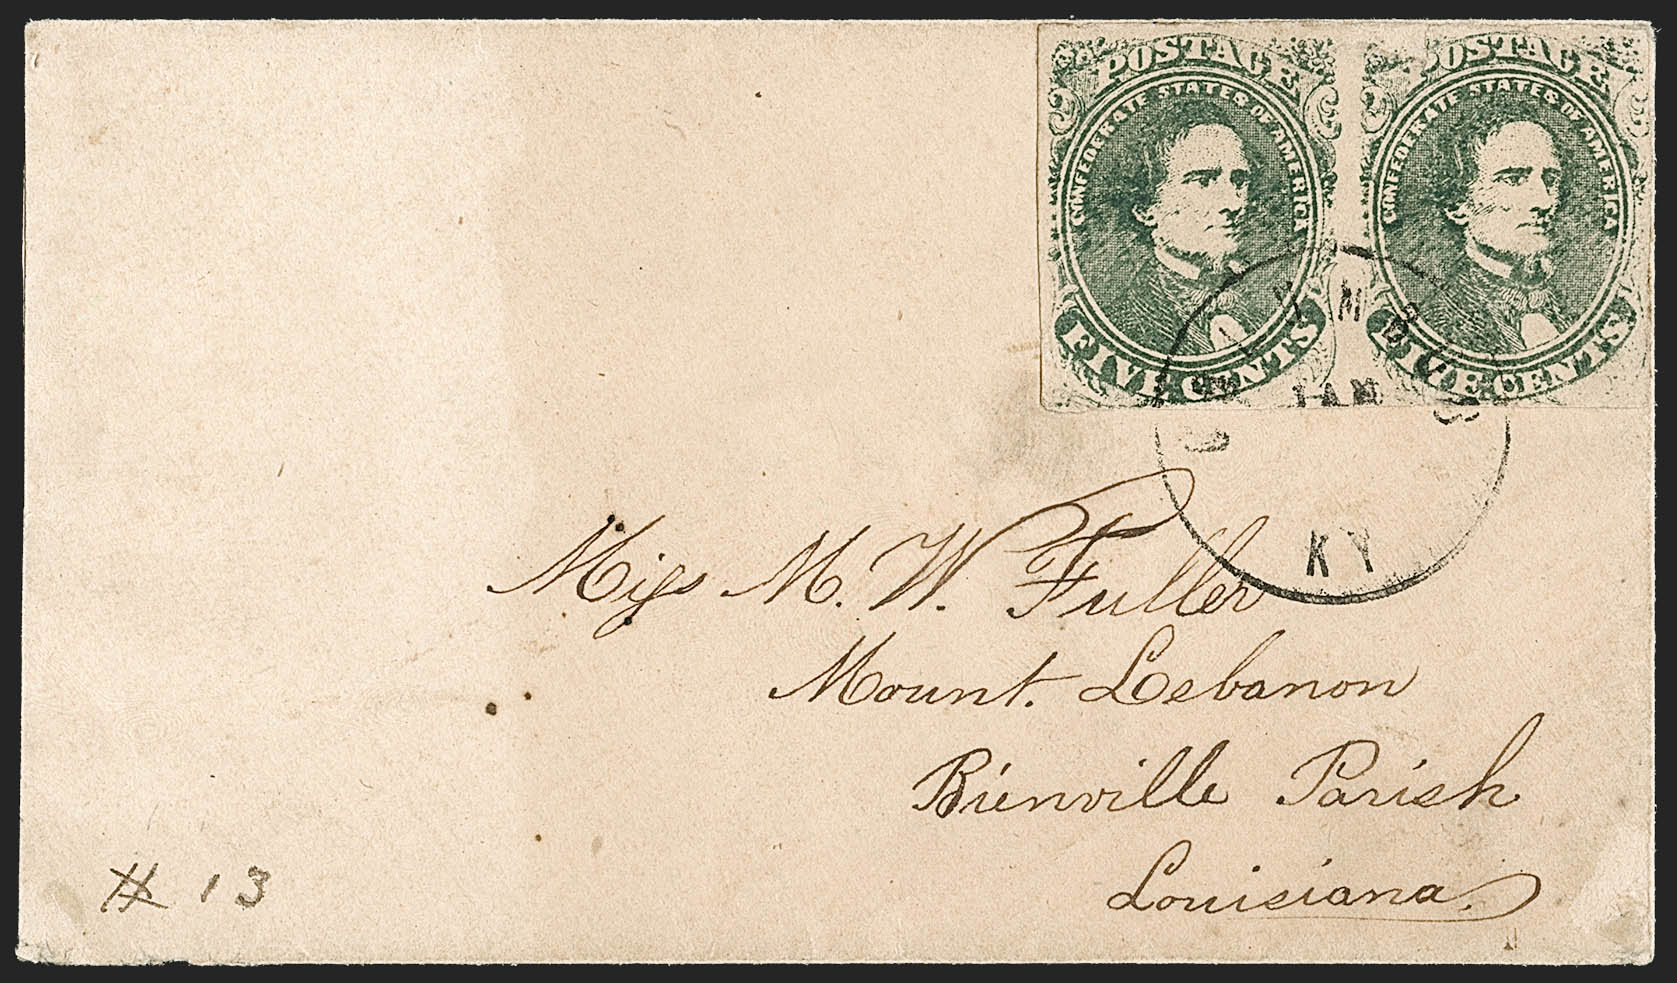 POSTAGE POSTAGE
CONFEDERATE STATES OF AMERICA CONFEDERATE STATES OF AMERICA
FIVE CENTS FIVE CENTS
COLUMBUS
JAN
KY
Miss M. W. Fuller
Mount. Lebanon
Bienville Parish
Louisiana.
# 13